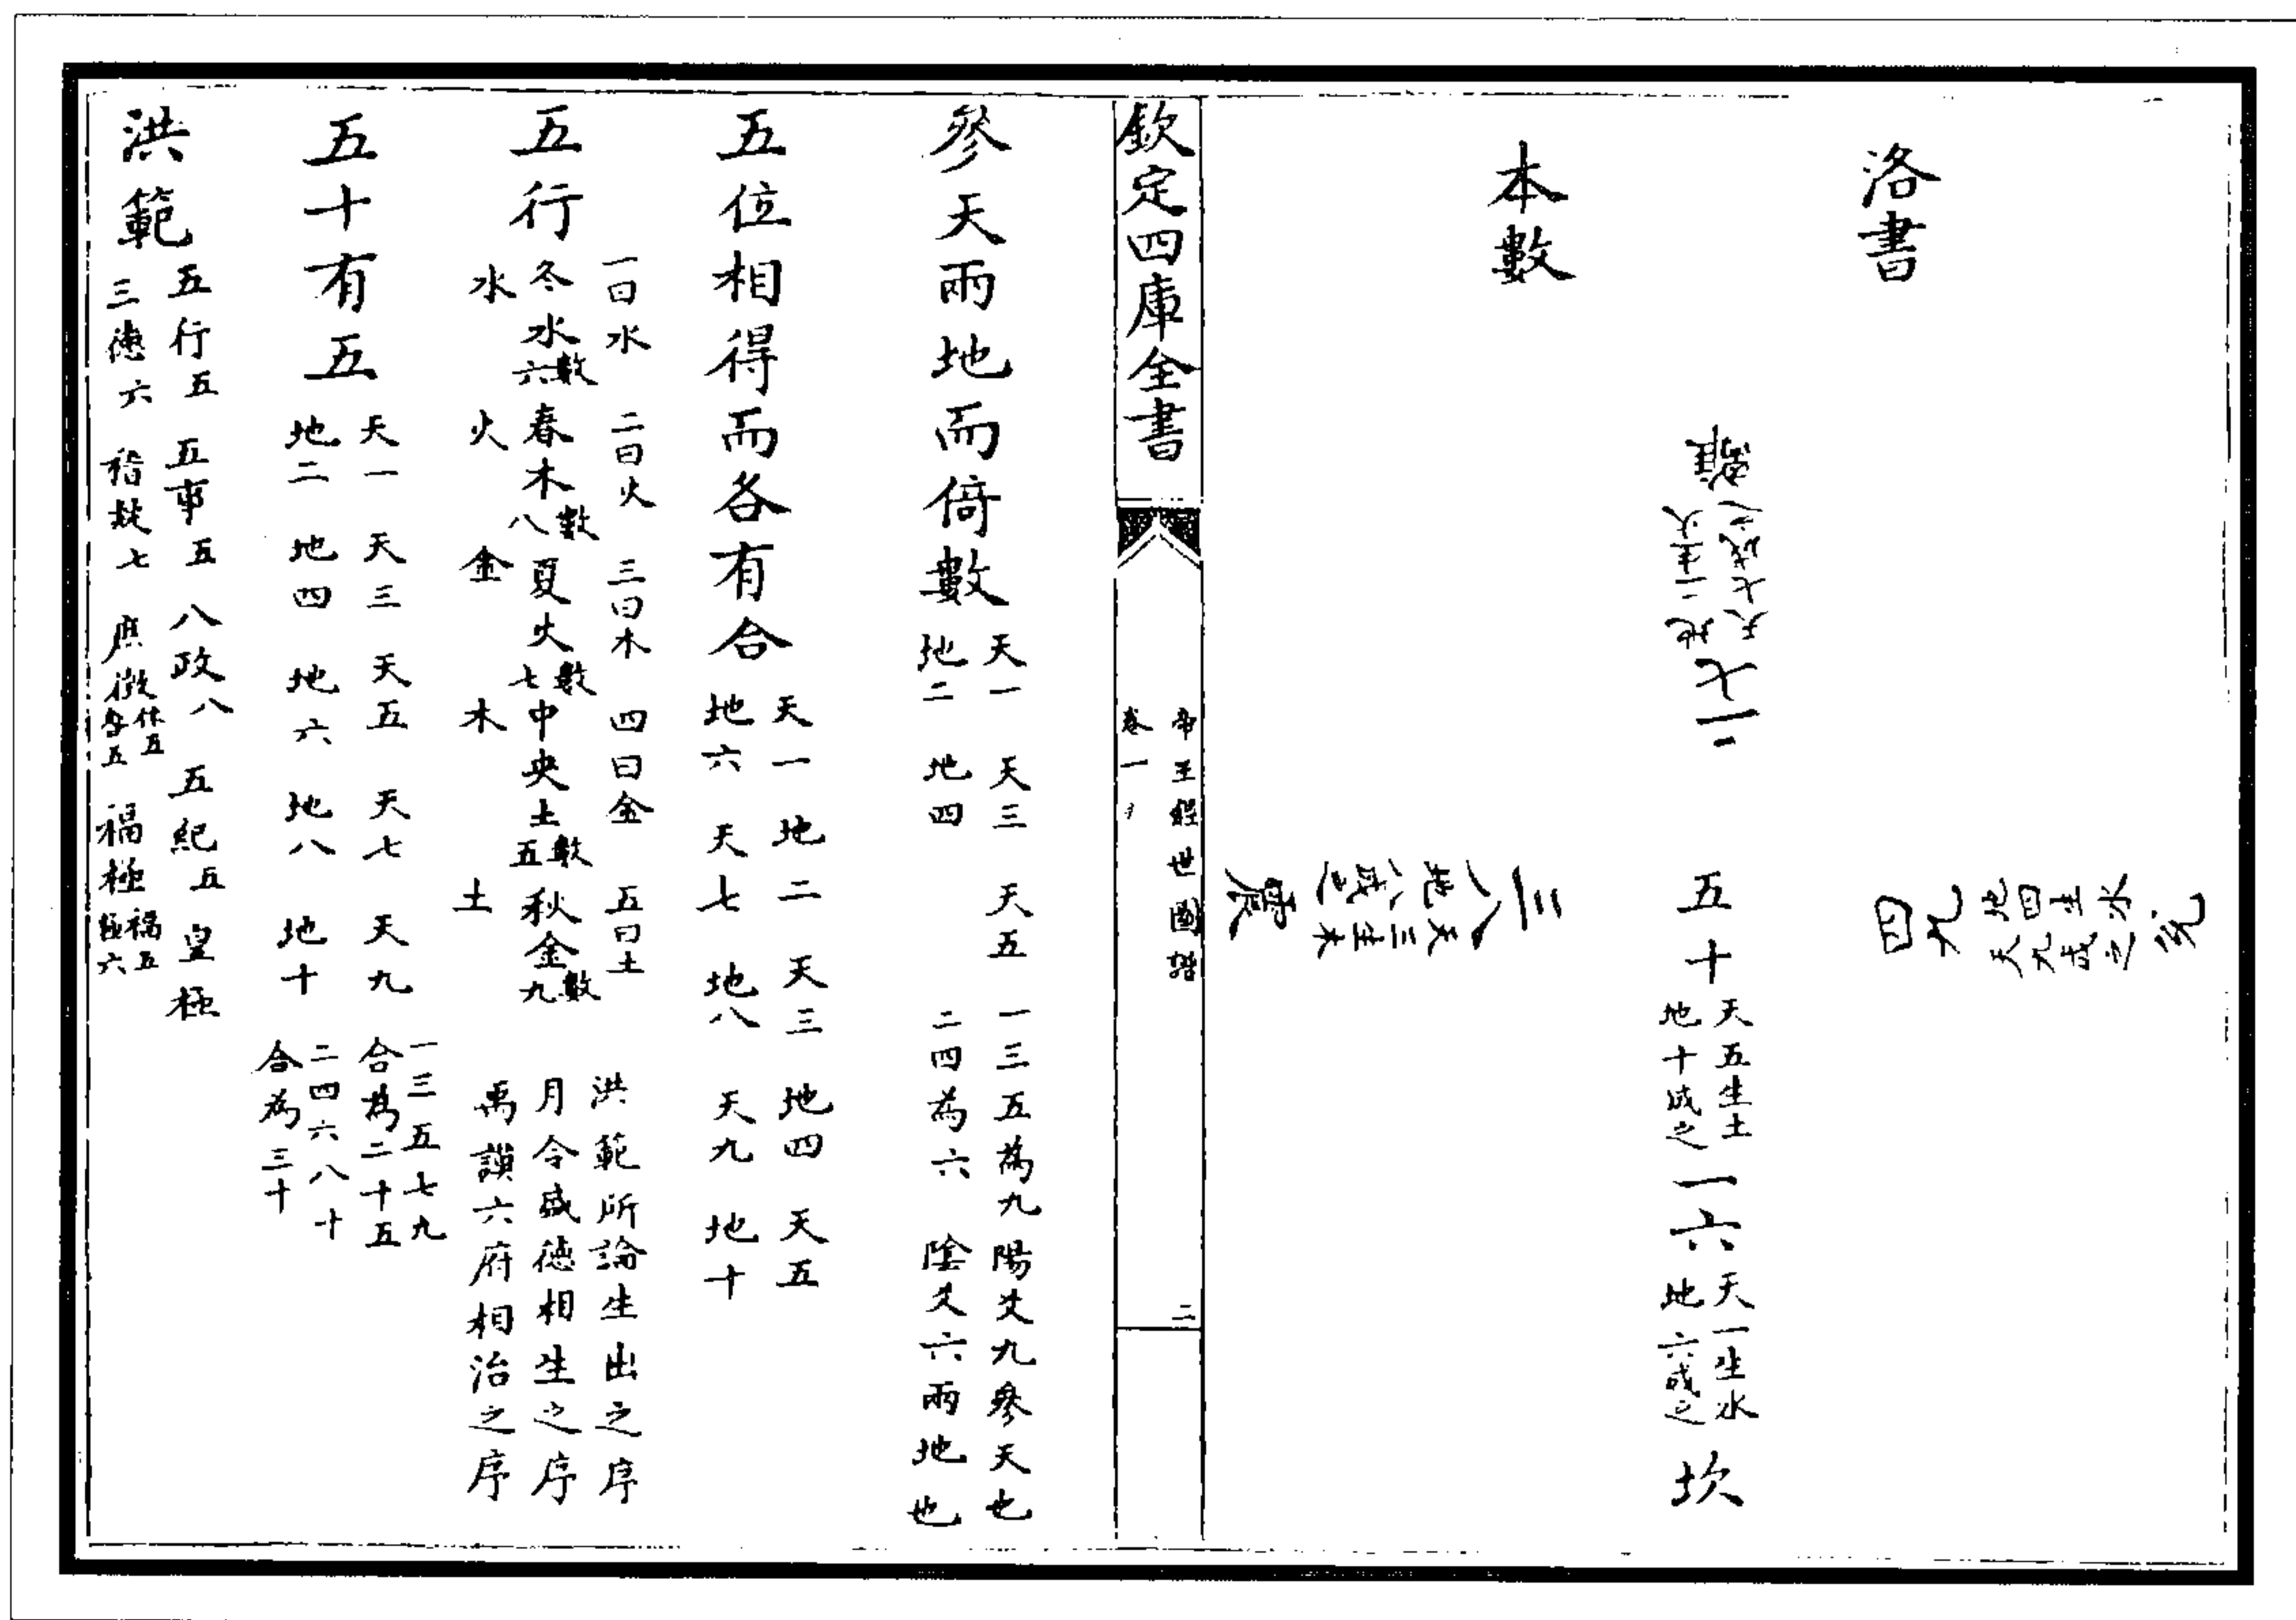 洛書
四九
地四生水
天九成之
兌
二七
地二生火
天七成之
離
五十
天五生土
地十成之
一六
天一生水
地六成之
坎
本數
三八
天三生木
地八成之
震
欽定四庫全書
帝王經世圖譜
卷一
二
參天兩地而倚數
天一 天三 天五 一三五為九陽爻九參天也
地二 地四 二四為六 陰爻六兩地也
五位相得而各有合
天一 地二 天三 地四 天五
地六 天七 地八 天九 地十
五行
一曰水 二曰火 三曰木 四曰金 五曰土 洪範所論生出之序
冬水數六 春木數八 夏火數七 中央土數五 秋金數九 月令盛德相生之序
水 火 金 木 土 禹謨六府相治之序
五十有五
天一 天三 天五 天七 天九 一三五七九合為二十五
地二 地四 地六 地八 地十 二四六八十合為三十
洪範
五行五 五事五 八政八 五紀五 皇極
三德六 稽疑七 庶徵休五咎五 福極福五極六